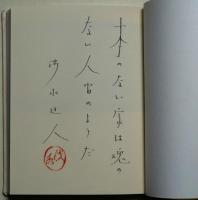 本のない家は魂の
ない人間のようだ